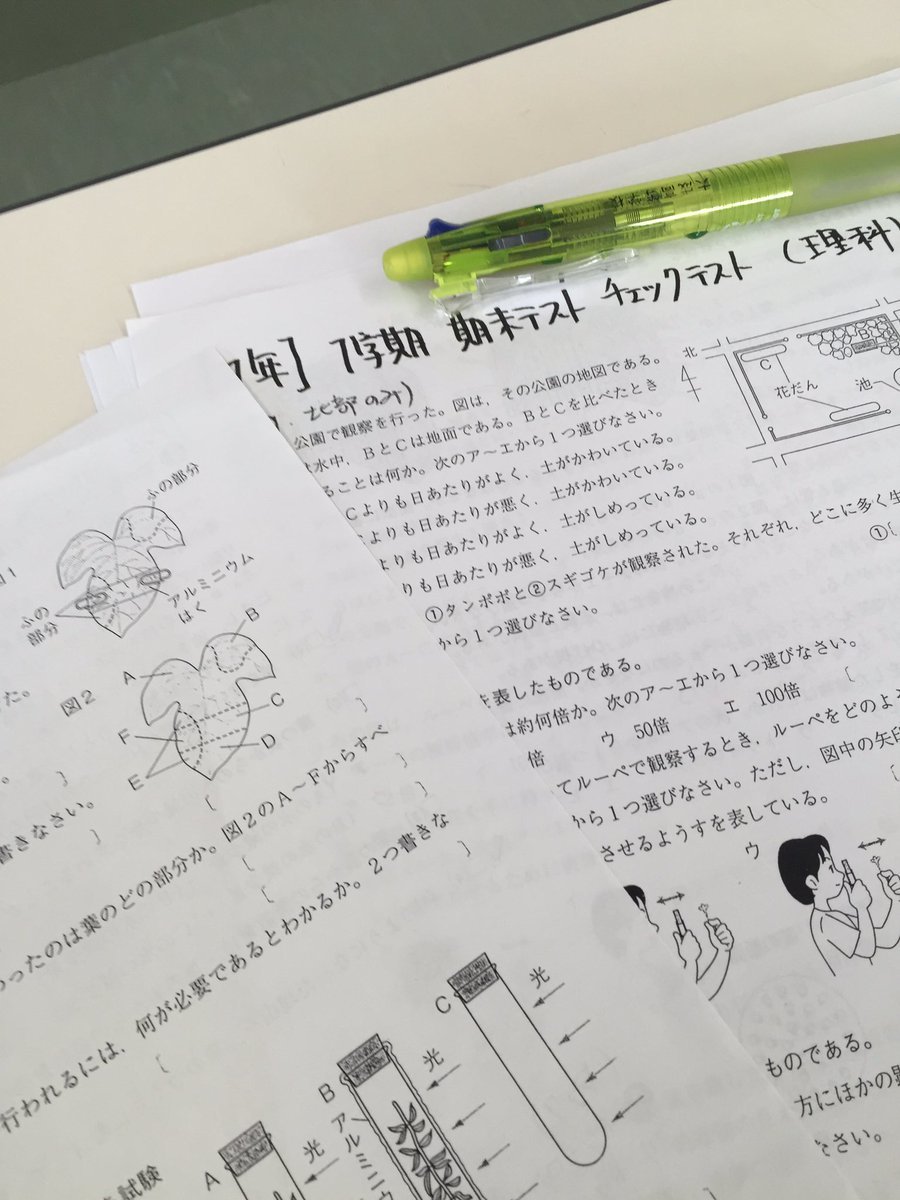 年] 1学期 期末テスト チェックテスト (理科)
公園で観察を行った。図は，その公園の地図である。
水中，BとCは地面である。BとCを比べたとき
ることは何か。次のア～エから1つ選びなさい。
Cよりも日あたりがよく，土がかわいている。
よりも日あたりが悪く，土がかわいている。
よりも日あたりがよく，土がしめっている。
りも日あたりが悪く，土がしめっている。
①タンポポと②スギゴケが観察された。それぞれ，どこに多く生
から1つ選びなさい。
①〔
北
B
C
花だん
池
を表したものである。
は約何倍か。次のア～エから1つ選びなさい。
倍 ウ 50倍 エ 100倍 〔
てルーペで観察するとき，ルーペをどのよ
から1つ選びなさい。ただし，図中の矢印
させるようすを表している。 〔
ウ
ものである。
方にほかの
さい。
図1
ふの部分
ふの
部分
アルミニウム
はく
た。
図2
A
B
C
D
E
F
書きなさい。
ったのは葉のどの部分か。図2のA～Fからすべ
行われるには，何が必要であるとわかるか。2つ書きな
試験
A
光
B
アルミニウ
光
C
光